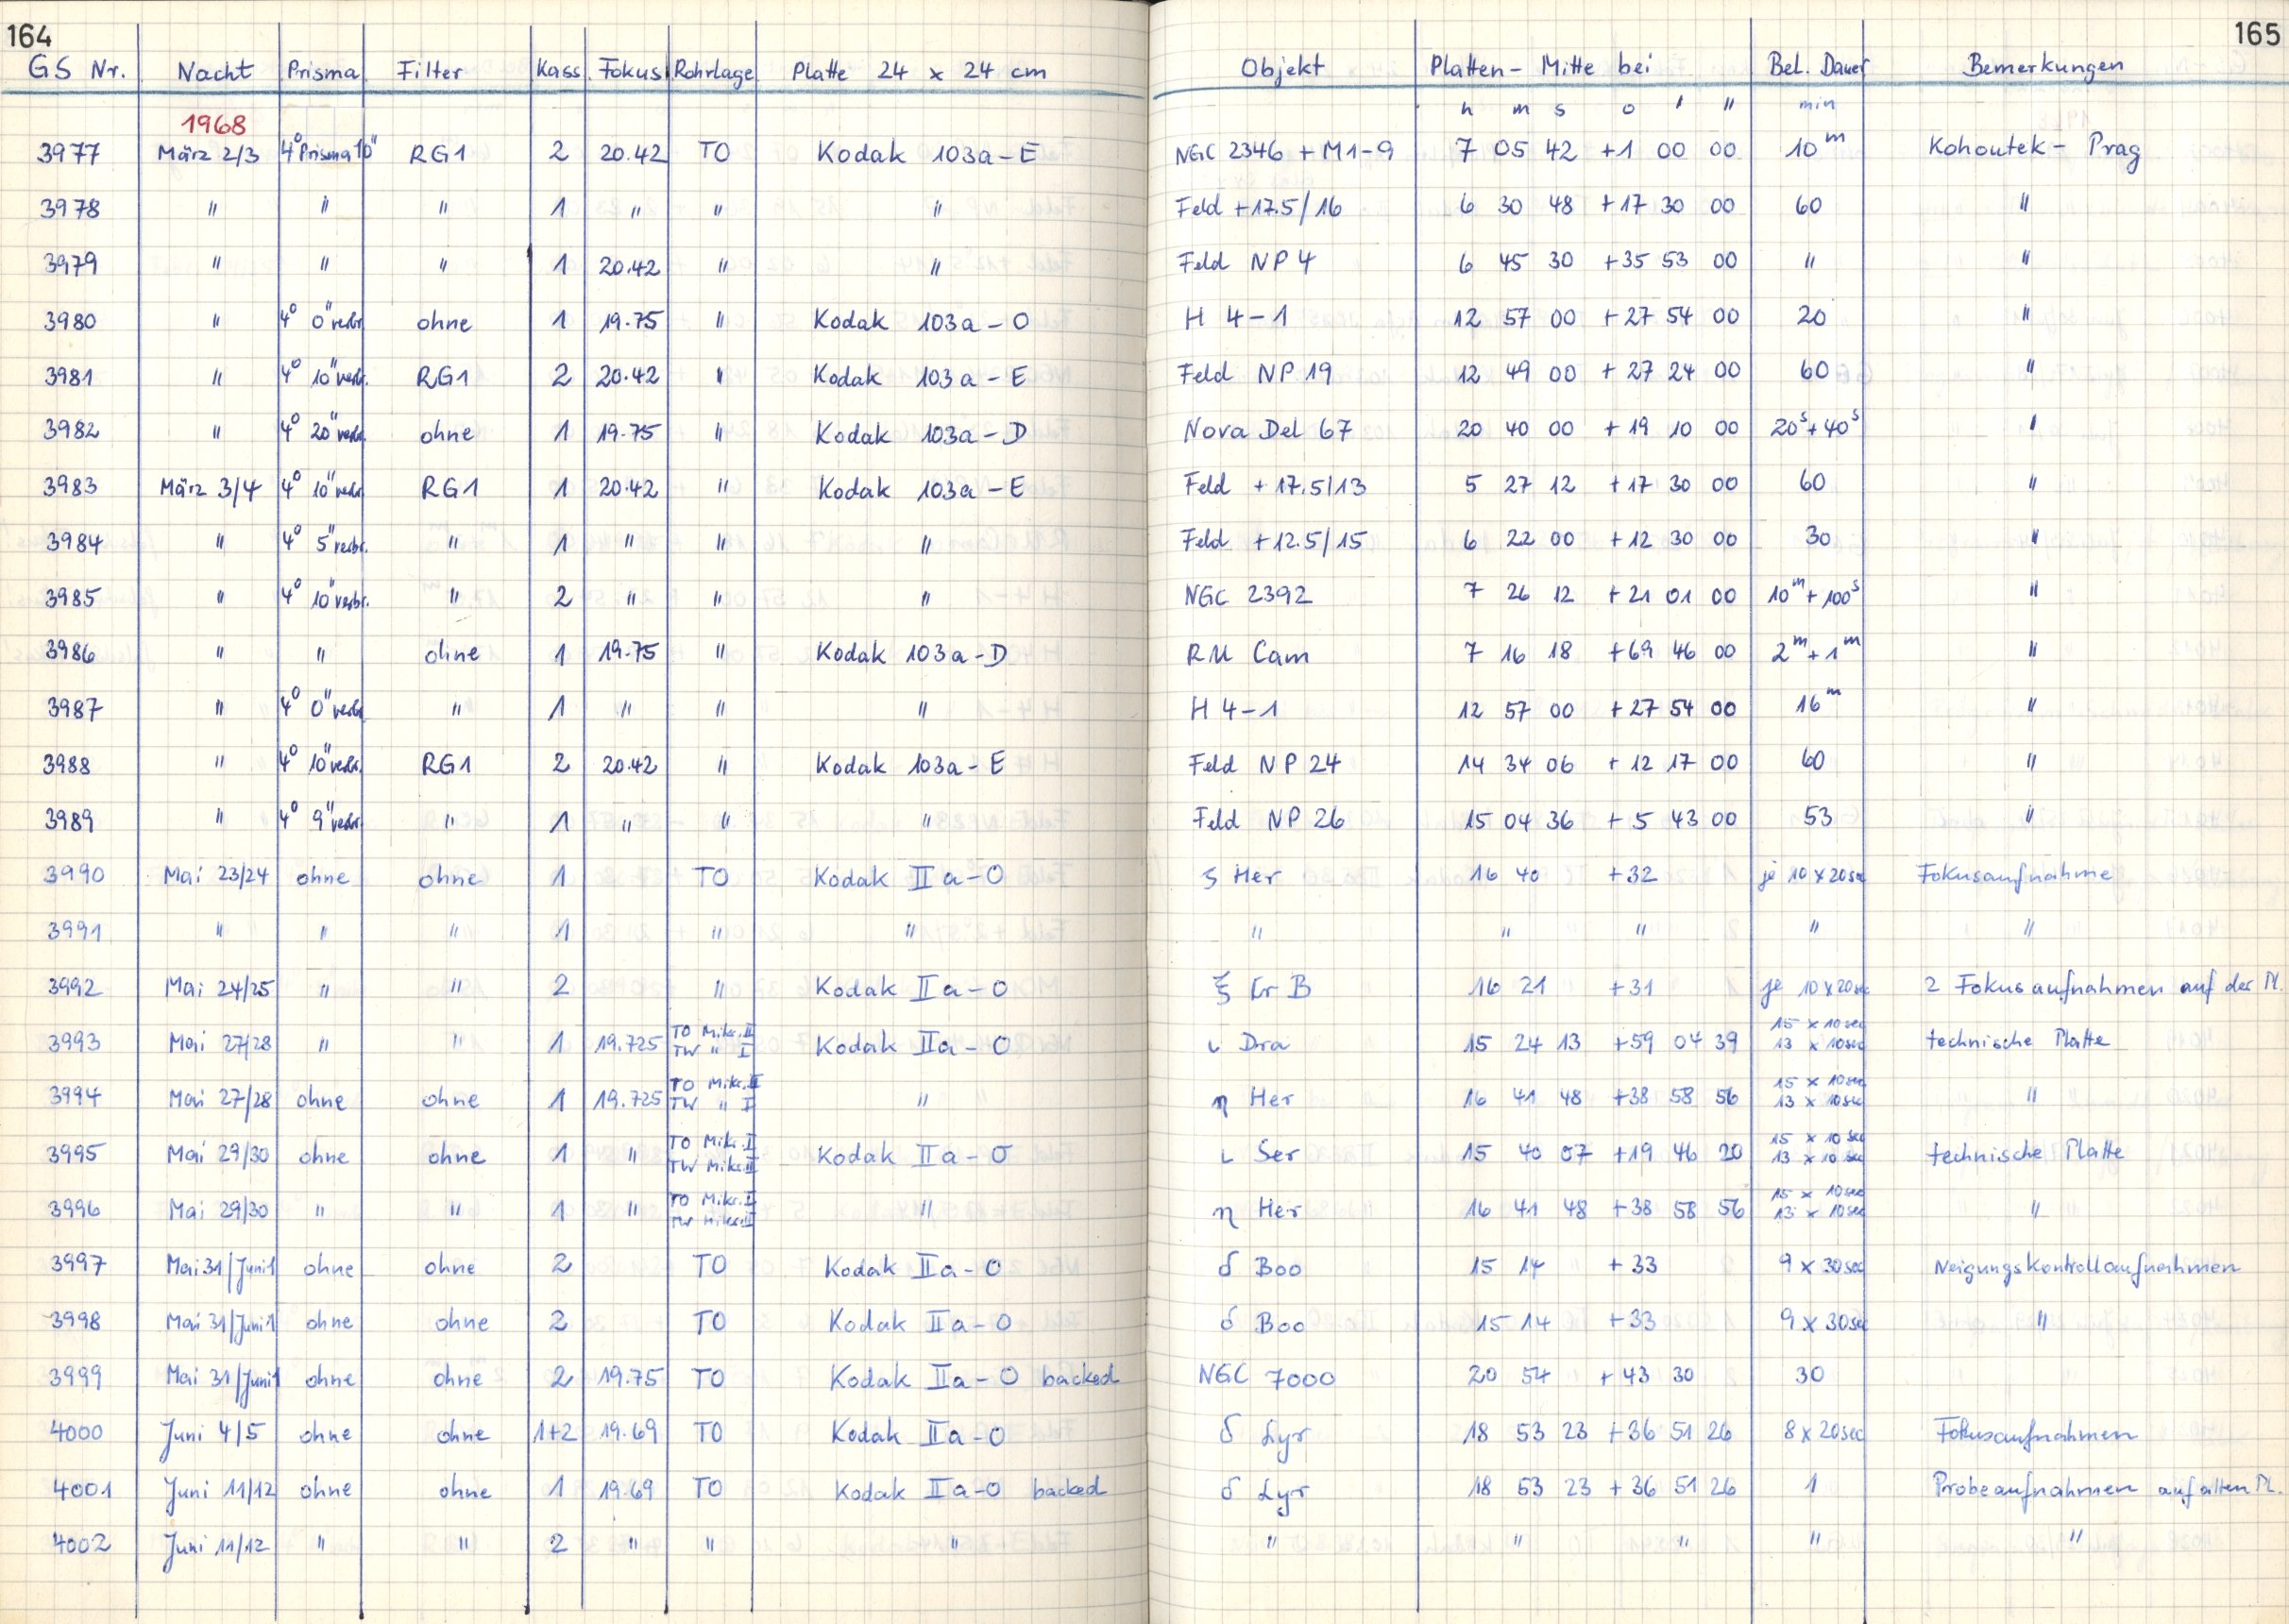 164 165
GS Nr. Nacht Prisma Filter Kass. Fokus Rohrlage Platte 24 x 24 cm Objekt Platten-Mitte bei Bel. Dauer Bemerkungen
h m s o ' " min
1968
3977 März 2/3 4° Prisma 10" RG1 2 20.42 TO Kodak 103a-E NGC 2346 + M1-9 7 05 42 +1 00 00 10m Kohoutek - Prag
3978 " " " 1 " " " Feld +17.5/16 6 30 48 +17 30 00 60 "
3979 " " " 1 20.42 " " Feld NP 4 6 45 30 +35 53 00 " "
3980 " 4° 0" verbr ohne 1 19.75 " Kodak 103a-O H 4-1 12 57 00 +27 54 00 20 "
3981 " 4° 10" verbr. RG1 2 20.42 " Kodak 103a-E Feld NP 19 12 49 00 +27 24 00 60 "
3982 " 4° 20" verbr. ohne 1 19.75 " Kodak 103a-D Nova Del 67 20 40 00 +19 10 00 20s+40s "
3983 März 3/4 4° 10" verbr RG1 1 20.42 " Kodak 103a-E Feld +17.5/13 5 27 12 +17 30 00 60 "
3984 " 4° 5" verbr. " 1 " " " Feld +12.5/15 6 22 00 +12 30 00 30 "
3985 " 4° 10" verbr. " 2 " " " NGC 2392 7 26 12 +21 01 00 10m+100s "
3986 " " ohne 1 19.75 " Kodak 103a-D RU Cam 7 16 18 +69 46 00 2m+1m "
3987 " 4° 0" verbr " 1 " " " H 4-1 12 57 00 +27 54 00 16m "
3988 " 4° 10" verbr. RG1 2 20.42 " Kodak 103a-E Feld NP 24 14 34 06 +12 17 00 60 "
3989 " 4° 9" verbr. " 1 " " " Feld NP 26 15 04 36 +5 43 00 53 "
3990 Mai 23/24 ohne ohne 1 TO Kodak IIa-O ς Her 16 40 +32 je 10 x 20sec Fokusaufnahme
3991 " " " 1 " " " " " " "
3992 Mai 24/25 " " 2 " Kodak IIa-O ξ Cr B 16 21 +31 je 10 x 20sec 2 Fokusaufnahmen auf der Pl.
3993 Mai 27/28 " " 1 19.725 TO Mikr. II Kodak IIa-O ι Dra 15 24 13 +59 04 39 15 x 10sec technische Platte
TW " I 13 x 10sec
3994 Mai 27/28 ohne ohne 1 19.725 TO Mikr. II " η Her 16 41 48 +38 58 56 15 x 10sec "
TW " I 13 x 10sec
3995 Mai 29/30 ohne ohne 1 " TO Mikr. I Kodak IIa-O ι Ser 15 40 07 +19 46 20 15 x 10 sec technische Platte
TW Mikr. II 13 x 10 sec
3996 Mai 29/30 " " 1 " TO Mikr. I " η Her 16 41 48 +38 58 56 15 x 10sec "
TW Mikr. II 13 x 10sec
3997 Mai 31/Juni 1 ohne ohne 2 TO Kodak IIa-O δ Boo 15 14 +33 9 x 30sec Neigungskontrollaufnahmen
3998 Mai 31/Juni 1 ohne ohne 2 TO Kodak IIa-O δ Boo 15 14 +33 9 x 30sec "
3999 Mai 31/Juni 1 ohne ohne 2 19.75 TO Kodak IIa-O backed NGC 7000 20 54 +43 30 30
4000 Juni 4/5 ohne ohne 1+2 19.69 TO Kodak IIa-O δ Lyr 18 53 23 +36 51 26 8 x 20sec Fokusaufnahmen
4001 Juni 11/12 ohne ohne 1 19.69 TO Kodak IIa-O backed δ Lyr 18 53 23 +36 51 26 1 Probeaufnahmen auf alten Pl.
4002 Juni 11/12 " " 2 " " " " " " " "